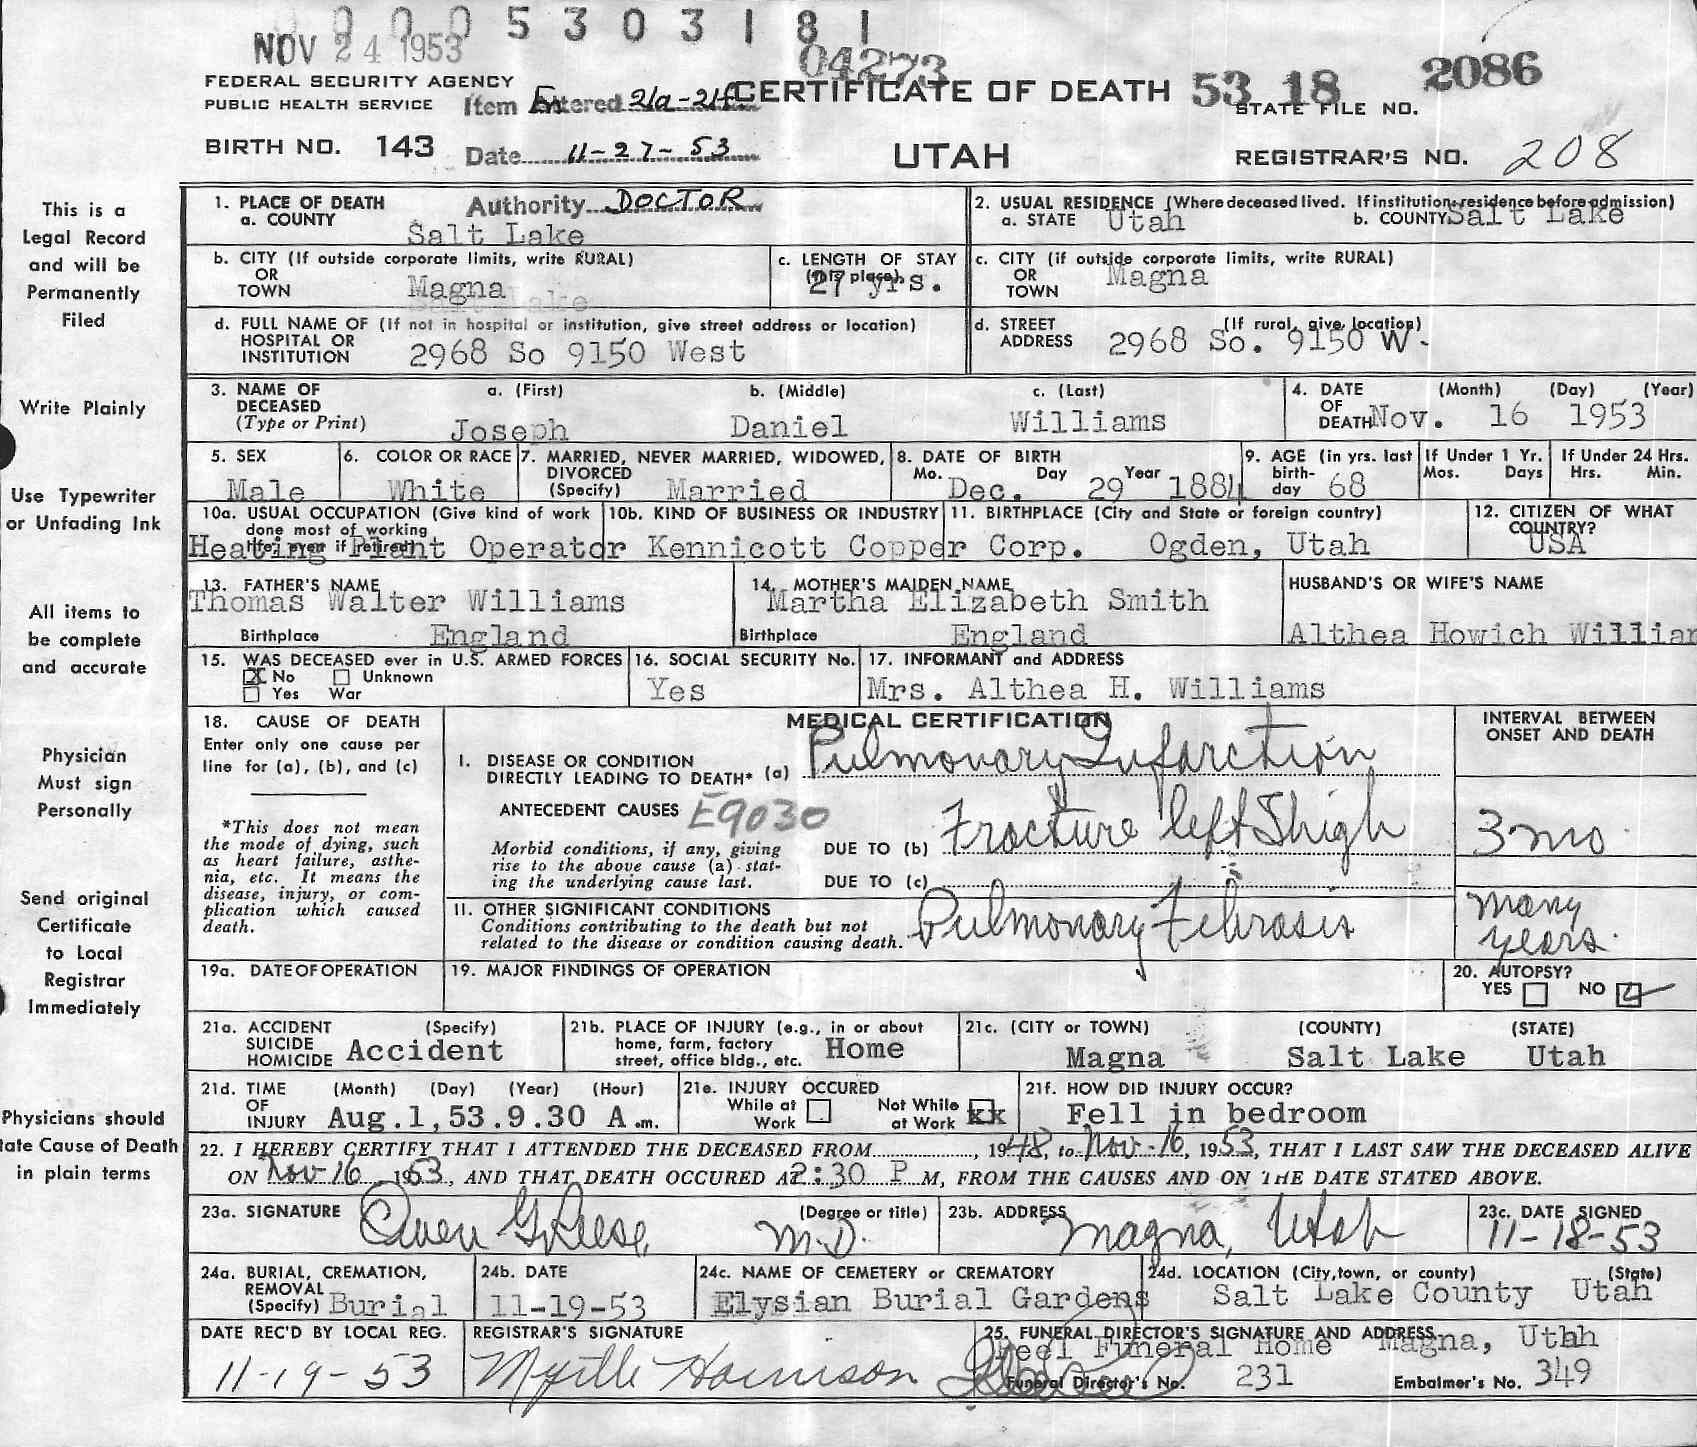 0 0 0 5 3 0 3 1 8 1
NOV 24 1953
04273
FEDERAL SECURITY AGENCY
PUBLIC HEALTH SERVICE
Item Entered 21a-21f
CERTIFICATE OF DEATH 53 18 2086
STATE FILE NO.
BIRTH NO. 143
Date 11-27-53
UTAH
REGISTRAR'S NO. 208
This is a
Legal Record
and will be
Permanently
Filed
Write Plainly
Use Typewriter
or Unfading Ink
All items to
be complete
and accurate
Physician
Must sign
Personally
Send original
Certificate
to Local
Registrar
Immediately
Physicians should
tate Cause of Death
in plain terms
1. PLACE OF DEATH
Authority DOCTOR
a. COUNTY
Salt Lake
2. USUAL RESIDENCE (Where deceased lived. If institution, residence before admission)
a. STATE Utah b. COUNTY Salt Lake
b. CITY (If outside corporate limits, write RURAL)
OR
TOWN Magna
c. LENGTH OF STAY
(in place)
27 yrs.
c. CITY (if outside corporate limits, write RURAL)
OR
TOWN Magna
d. FULL NAME OF (If not in hospital or institution, give street address or location)
HOSPITAL OR
INSTITUTION 2968 So 9150 West
d. STREET (If rural, give location)
ADDRESS 2968 So. 9150 W.
3. NAME OF
DECEASED
(Type or Print)
a. (First) b. (Middle) c. (Last)
Joseph Daniel Williams
4. DATE (Month) (Day) (Year)
OF
DEATH Nov. 16 1953
5. SEX
Male
6. COLOR OR RACE
White
7. MARRIED, NEVER MARRIED, WIDOWED,
DIVORCED
(Specify) Married
8. DATE OF BIRTH
Mo. Day Year
Dec. 29 1884
9. AGE (in yrs. last
birth-
day 68
If Under 1 Yr.
Mos. Days
If Under 24 Hrs.
Hrs. Min.
10a. USUAL OCCUPATION (Give kind of work
done most of working
life, even if retired)
Heating Plant Operator
10b. KIND OF BUSINESS OR INDUSTRY
Kennicott Copper Corp.
11. BIRTHPLACE (City and State or foreign country)
Ogden, Utah
12. CITIZEN OF WHAT
COUNTRY?
USA
13. FATHER'S NAME
Thomas Walter Williams
Birthplace England
14. MOTHER'S MAIDEN NAME
Martha Elizabeth Smith
Birthplace England
HUSBAND'S OR WIFE'S NAME
Althea Howich Williar
15. WAS DECEASED ever in U.S. ARMED FORCES
X No Unknown
Yes War
16. SOCIAL SECURITY No.
Yes
17. INFORMANT and ADDRESS
Mrs. Althea H. Williams
18. CAUSE OF DEATH
Enter only one cause per
line for (a), (b), and (c)
*This does not mean
the mode of dying, such
as heart failure, asthe-
nia, etc. It means the
disease, injury, or com-
plication which caused
death.
MEDICAL CERTIFICATION
INTERVAL BETWEEN
ONSET AND DEATH
I. DISEASE OR CONDITION
DIRECTLY LEADING TO DEATH* (a) Pulmonary Infarction
ANTECEDENT CAUSES E9030
Morbid conditions, if any, giving
rise to the above cause (a) stat-
ing the underlying cause last.
DUE TO (b) Fracture left Thigh 3 mo
DUE TO (c)
II. OTHER SIGNIFICANT CONDITIONS
Conditions contributing to the death but not
related to the disease or condition causing death.
Pulmonary Fibrosis many
years.
19a. DATE OF OPERATION
19. MAJOR FINDINGS OF OPERATION
20. AUTOPSY?
YES NO
21a. ACCIDENT (Specify)
SUICIDE
HOMICIDE Accident
21b. PLACE OF INJURY (e.g., in or about
home, farm, factory
street, office bldg., etc. Home
21c. (CITY or TOWN) (COUNTY) (STATE)
Magna Salt Lake Utah
21d. TIME (Month) (Day) (Year) (Hour)
OF
INJURY Aug.1,53.9.30 A.m.
21e. INJURY OCCURED
While at
Work
Not While
at Work xx
21f. HOW DID INJURY OCCUR?
Fell in bedroom
22. I HEREBY CERTIFY THAT I ATTENDED THE DECEASED FROM, 1948, to Nov-16, 1953, THAT I LAST SAW THE DECEASED ALIVE
ON Nov 16, 1953, AND THAT DEATH OCCURED AT 2:30 P M, FROM THE CAUSES AND ON THE DATE STATED ABOVE.
23a. SIGNATURE (Degree or title)
Owen G Reese M.D.
23b. ADDRESS
Magna, Utah
23c. DATE SIGNED
11-18-53
24a. BURIAL, CREMATION,
REMOVAL
(Specify) Burial
24b. DATE
11-19-53
24c. NAME OF CEMETERY or CREMATORY
Elysian Burial Gardens
24d. LOCATION (City, town, or county) (State)
Salt Lake County Utah
DATE REC'D BY LOCAL REG.
11-19-53
REGISTRAR'S SIGNATURE
Myrtle Harrison
25. FUNERAL DIRECTOR'S SIGNATURE AND ADDRESS
Peel Funeral Home Magna, Utah
Funeral Director's No. 231
Embalmer's No. 349